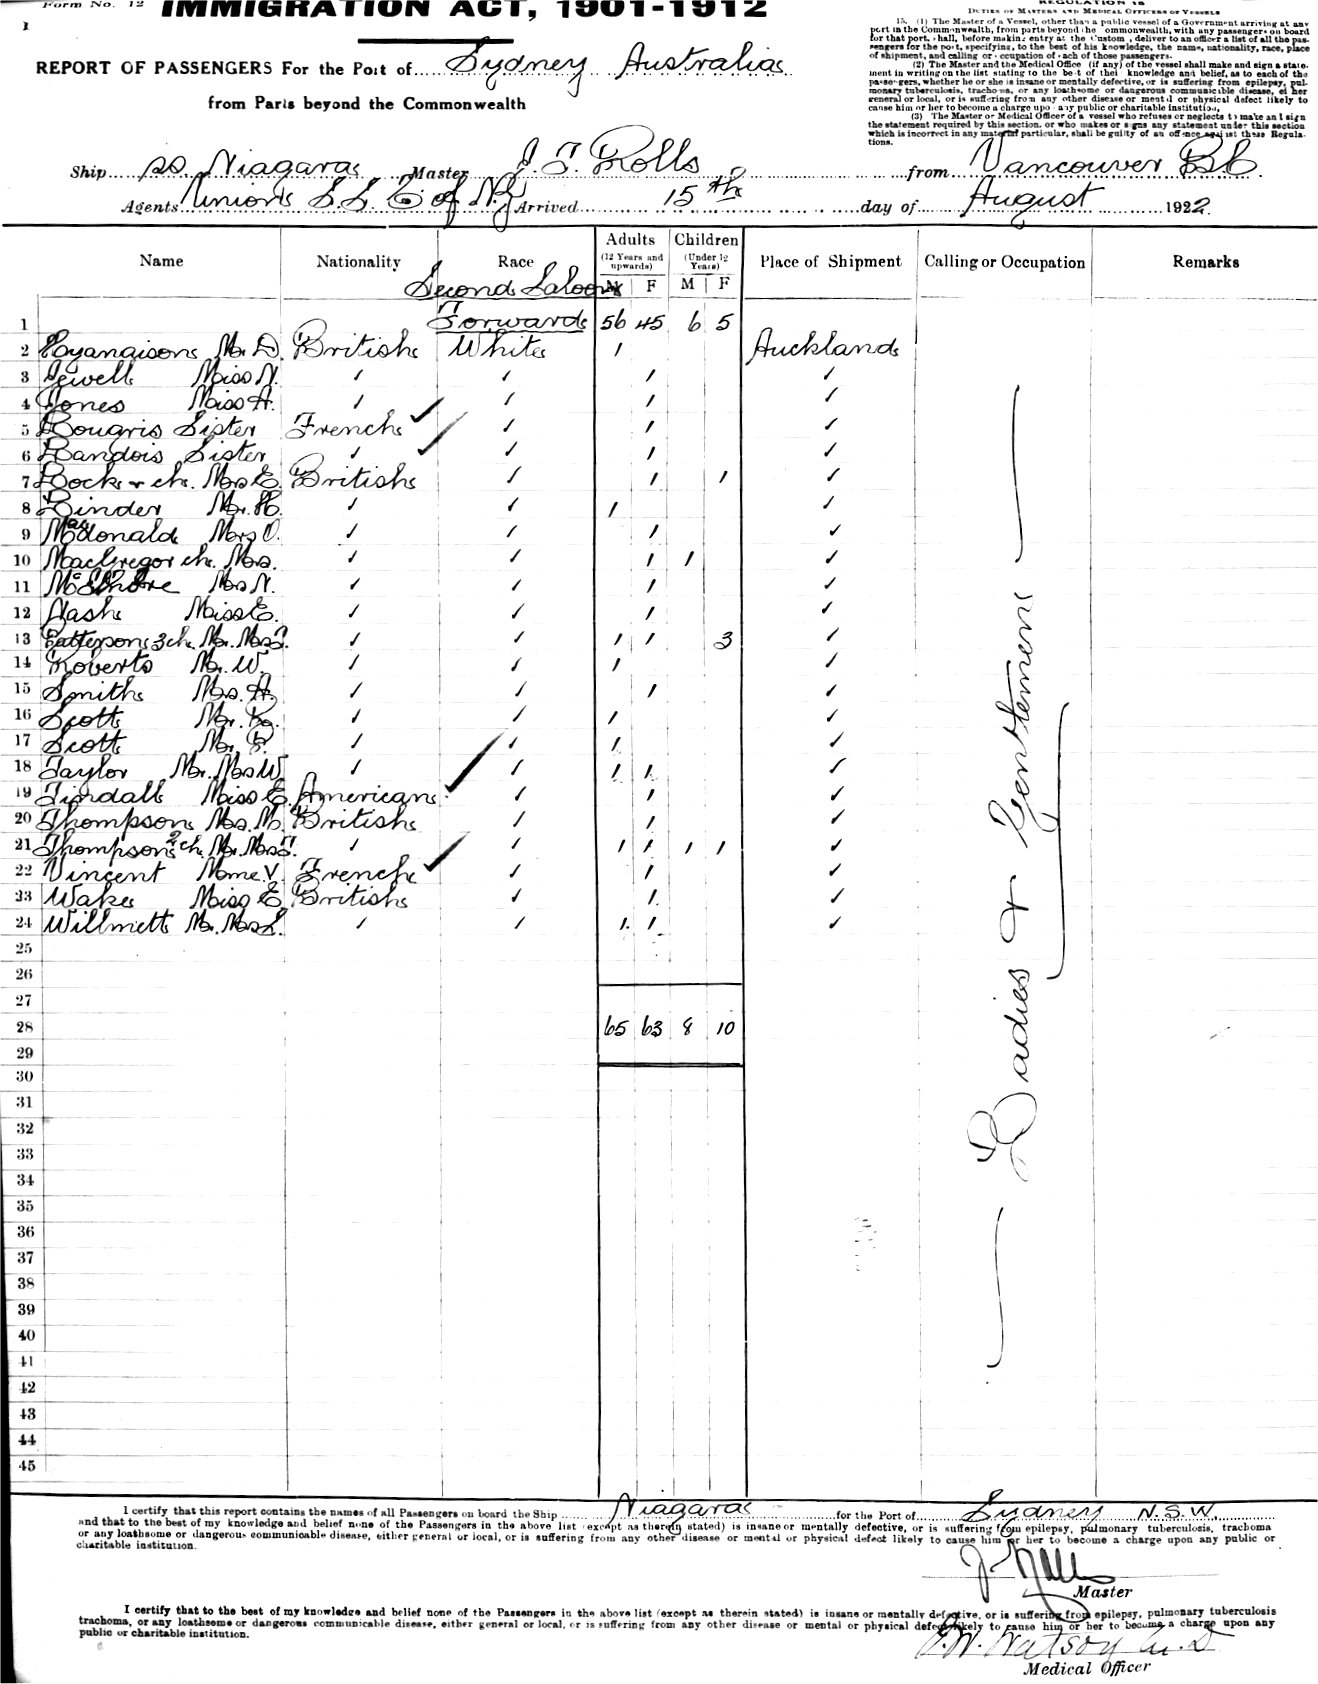 Form No. 12
IMMIGRATION ACT, 1901-1912
1
REPORT OF PASSENGERS For the Port of Sydney Australia
from Parts beyond the Commonwealth
REGULATION 15
DUTIES OF MASTERS AND MEDICAL OFFICERS OF VESSELS
15. (1) The Master of a Vessel, other than a public vessel of a Government arriving at any
port in the Commonwealth, from parts beyond the Commonwealth, with any passengers on board
for that port, shall, before making entry at the Customs, deliver to an officer a list of all the pas-
sengers for the port, specifying, to the best of his knowledge, the name, nationality, race, place
of shipment, and calling or occupation of each of those passengers.
(2) The Master and the Medical Office (if any) of the vessel shall make and sign a state-
ment in writing on the list stating to the best of their knowledge and belief, as to each of the
passengers, whether he or she is insane or mentally defective, or is suffering from epilepsy, pul-
monary tuberculosis, trachoma, or any loathsome or dangerous communicible disease, either
general or local, or is suffering from any other disease or mental or physical defect likely to
cause him or her to become a charge upon any public or charitable institution.
(3) The Master or Medical Officer of a vessel who refuses or neglects to make and sign
the statement required by this section, or who makes or signs any statement under this section
which is incorrect in any material particular, shall be guilty of an offence against these Regula-
tions.
Ship ss Niagara Master J. T. Rolls from Vancouver B.C.
Agents Union S.S. Co of N.Z. Arrived 15th day of August 1922.
Name Nationality Race Adults (12 Years and upwards) M F Children (Under 12 Years) M F Place of Shipment Calling or Occupation Remarks
Second Saloon
1 Forward 56 45 6 5
2 Mr. D. British White 1 Auckland
3 Jewell Miss N. ✓ ✓ 1 ✓
4 Jones Miss A. ✓ ✓ 1 ✓
5 Sister French ✓ ✓ 1 ✓
6 Landois Sister ✓ ✓ ✓ 1 ✓
7 Lock & ch. Mrs E. British ✓ 1 1 ✓
8 Linder Mr. H. ✓ ✓ 1 ✓
9 Macdonald Mrs O. ✓ ✓ 1 ✓
10 MacGregor ch. Mrs. ✓ ✓ 1 1 ✓
11 Mrs N. ✓ ✓ 1 ✓
12 Nash Miss E. ✓ ✓ 1 ✓
13 Patterson 3 ch. Mr. Mrs J. ✓ ✓ 1 1 3 ✓
14 Roberts Mr. W. ✓ ✓ 1 ✓
15 Smith Mrs. A. ✓ ✓ 1 ✓
16 Scott Mr. ✓ ✓ 1 ✓
17 Scott Mr. ✓ ✓ 1 ✓
18 Taylor Mr. Mrs W. ✓ ✓ 1 1 ✓
19 Tindall Miss E. American ✓ ✓ 1 ✓
20 Thompson Mrs. M. British ✓ 1 ✓
21 Thompson 2 ch. Mr. Mrs T. ✓ ✓ 1 1 1 1 ✓
22 Vincent Mme. V. French ✓ ✓ 1 ✓
23 Wake Miss E. British ✓ 1 ✓
24 Willmett Mr. Mrs L. ✓ ✓ 1 1 ✓
Ladies & Gentlemen
25
26
27
28 65 63 8 10
29
30
31
32
33
34
35
36
37
38
39
40
41
42
43
44
45
I certify that this report contains the names of all Passengers on board the Ship Niagara for the Port of Sydney N.S.W.
and that to the best of my knowledge and belief none of the Passengers in the above list (except as therein stated) is insane or mentally defective, or is suffering from epilepsy, pulmonary tuberculosis, trachoma
or any loathsome or dangerous communicable disease, either general or local, or is suffering from any other disease or mental or physical defect likely to cause him or her to become a charge upon any public or
charitable institution.
J. Rolls
Master
I certify that to the best of my knowledge and belief none of the Passengers in the above list (except as therein stated) is insane or mentally defective, or is suffering from epilepsy, pulmonary tuberculosis
trachoma, or any loathsome or dangerous communicable disease, either general or local, or is suffering from any other disease or mental or physical defect likely to cause him or her to become a charge upon any
public or charitable institution.
E.W. Watson M.D
Medical Officer